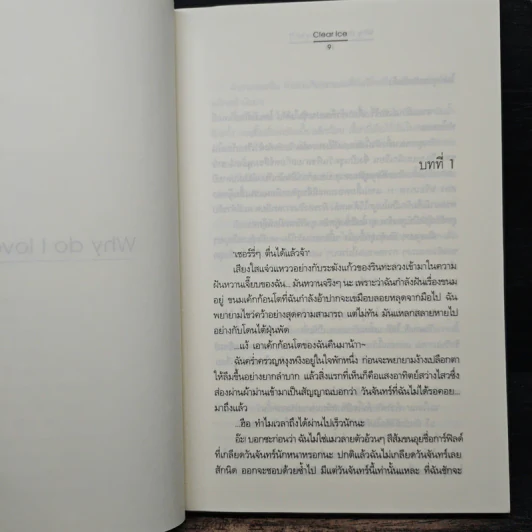 Clear Ice
9
บทที่ 1
Why do I love
'เชอร์รี่ๆ ตื่นได้แล้วจ้า'
เสียงใสแจ๋วแหววอย่างกับระฆังแก้วของรินทะลวงเข้ามาในความ
ฝันหวานเจี๊ยบของฉัน... มันหวานจริงๆ นะ เพราะว่าฉันกำลังฝันเรื่องขนม
อยู่ ขนมเค้กก้อนโตที่ฉันกำลังอ้าปากจะเขมือบลอยหลุดจากมือไป ฉัน
พยายามไขว่คว้าอย่างสุดความสามารถ แต่ไม่ทัน มันแหลกสลายหายไป
อย่างกับโดนไต้ฝุ่นพัด
...แง้ เอาเค้กก้อนโตของฉันคืนมาน้า~
ฉันคร่ำครวญหงุงหงิงอยู่ในใจพักหนึ่ง ก่อนจะพยายามง้างเปลือกตา
ให้ลืมขึ้นอย่างยากลำบาก แล้วสิ่งแรกที่เห็นก็คือแสงอาทิตย์สว่างไสวซึ่ง
ส่องผ่านผ้าม่านเข้ามาเป็นสัญญาณบอกว่า วันจันทร์ที่ฉันไม่ได้รอคอย...
มาถึงแล้ว
...ฮือ ทำไมเวลาถึงได้ผ่านไปเร็วนักนะ
อ๊ะ! บอกซะก่อนว่า ฉันไม่ใช่แมวลายตัวอ้วนๆ สีส้มขนอุยชื่อการ์ฟิลด์
ที่เกลียดวันจันทร์นักหนาหรอกน่ะ ปกติแล้วฉันไม่เกลียดวันจันทร์เลย
สักนิด ออกจะชอบด้วยซ้ำไป มีแต่วันจันทร์นี้เท่านั้นแหละ ที่ฉันชักจะ